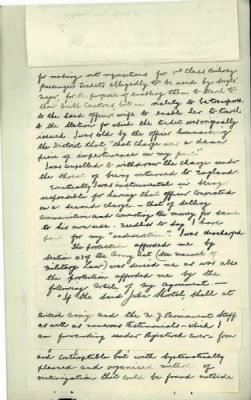 for making out requisitions for 1st Class Railway
Passengers Tickets allegedly to be used by single
for the purpose of enabling them to travel to
their Drill Centres, but in reality to be
to the said officers wife to enable her to travel
to the Station for which the ticket was originally
issued. I was told by the officer Commanding
the District that "that charge was a damn
piece of impertinence on my part"
I was compelled to withdraw the charge under
the threat of being returned to England.
Eventually I was instrumental in being
responsible for having that officer convicted
on a second charge - that of selling
ammunition and converting the money for same
to his own use. Needless to say I have
paid for my "indiscretion" I was discharged.
The protection afforded me by
Section of the Army Act (see manual of
military Law) was denied me as was also
the protection afforded me by the
following Article of my agreement:—
"If the said John shall at
British Army and the N.Z. Permanent Staff
as well as numerous Testimonials - which I
am forwarding under Registered Cover from
and contemptible but with systematically
planned and organised method of
victimization that could be found outside